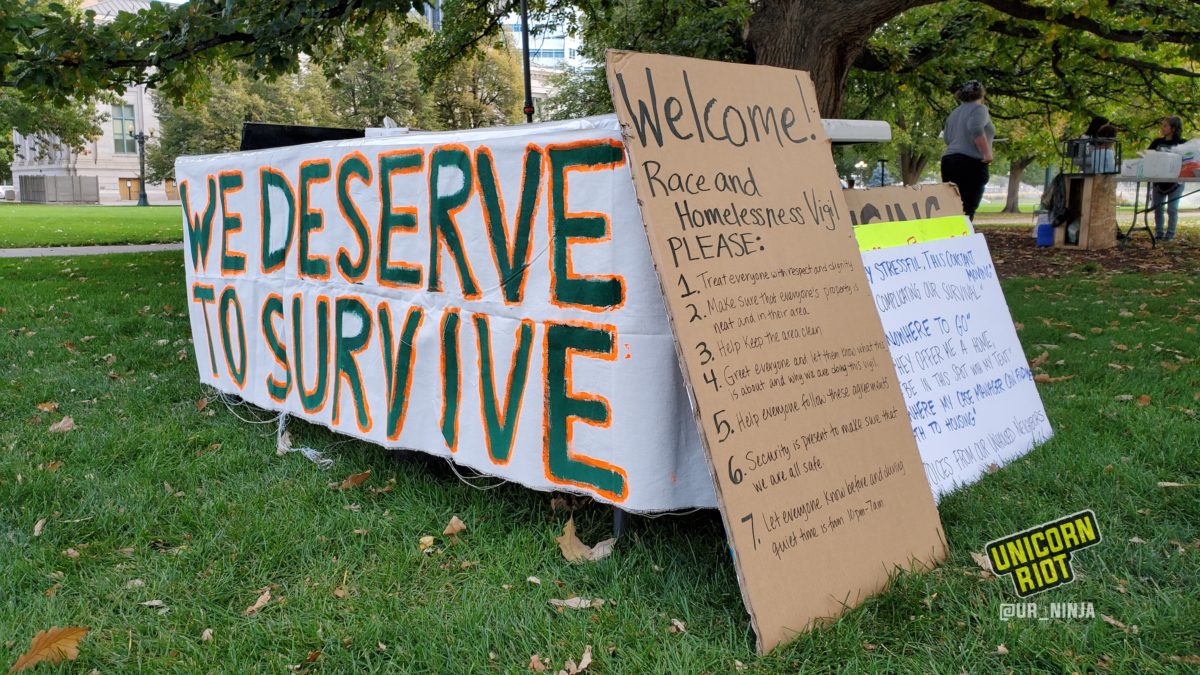 WE DESERVE
TO SURVIVE
Welcome!
Race and
Homelessness Vigil
PLEASE:
1. Treat everyone with respect and dignity
2. Make sure that everyone's property is
neat and in their area
3. Help Keep the area clean
4. Greet everyone and let them know what this
is about and why we are doing this vigil
5. Help everyone follow these agreements
6. Security is present to make sure that
we are all safe.
7. Let everyone know before and during
quiet time is from 10pm-7am
USING
Y STRESSFUL THIS CONSTANT
MOVING"
COMPLICATING OUR SURVIVAL"
NOWHERE TO GO"
HEY OFFER ME A HOME,
BE IN THIS SPOT WITH MY TENT"
WHERE MY CASE MANAGER CAN FIND ME
TH TO HOUSING"
VOICES FROM OUR UNHOUSED NEIGHBORS
UNICORN
RIOT
@UR_NINJA